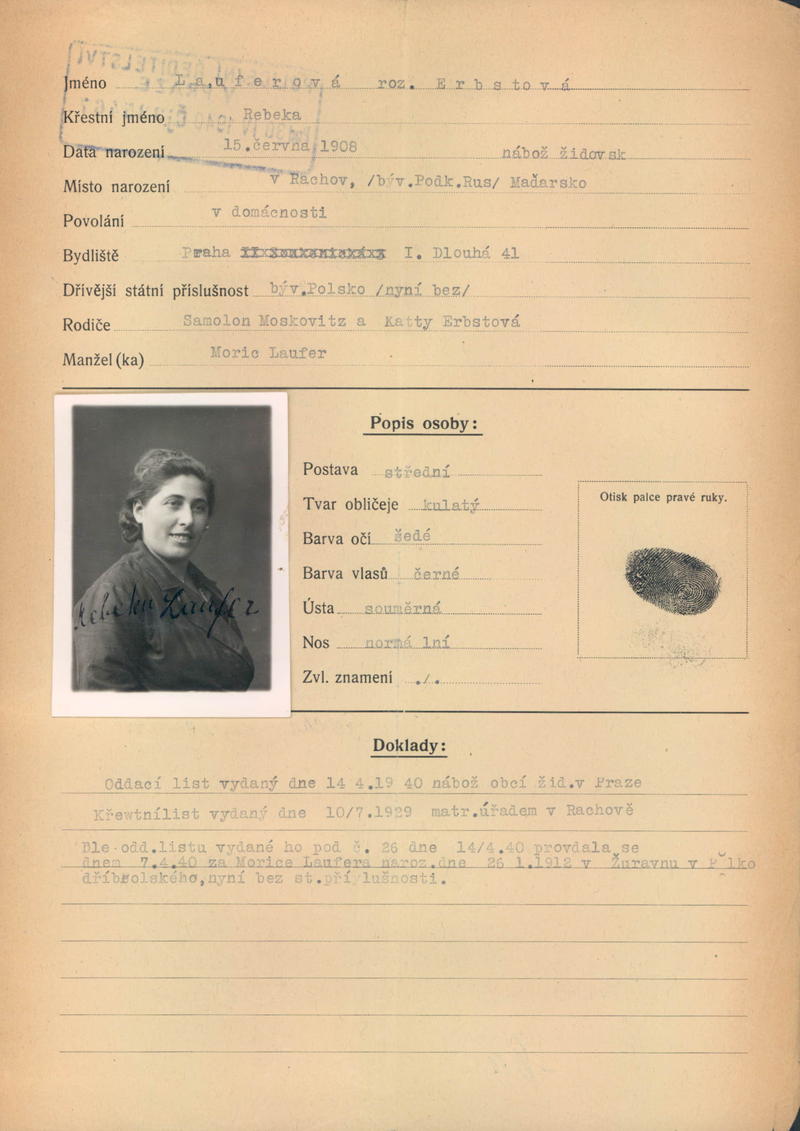 Jméno Lauferová roz. Erbstová
Křestní jméno Rebeka
Data narození 15.června 1908 nábož židovsk
Místo narození v Rachov, /býv.Podk.Rus/ Maďarsko
Povolání v domácnosti
Bydliště Praha I. Dlouhá 41
Dřívější státní příslušnost býv.Polsko /nyní bez/
Rodiče Samolon Moskovitz a Katty Erbstová
Manžel (ka) Moric Laufer
Popis osoby:
Postava střední
Tvar obličeje kulatý
Barva očí šedé
Barva vlasů černé
Ústa souměrná
Nos normá lní
Zvl. znamení ./.
Otisk palce pravé ruky.
Rebeka Laufer
Doklady:
Oddací list vydaný dne 14 4.19 40 nábož obcí žid.v Praze
Křewtnílist vydaný dne 10/7.1929 matr.úřadem v Rachově
Dle odd.listu vydané ho pod č. 26 dne 14/4.40 provdala se
dnem 7.4.40 za Morice Laufera naroz.dne 26 1.1912 v Žuravnu v
nyní bez st.